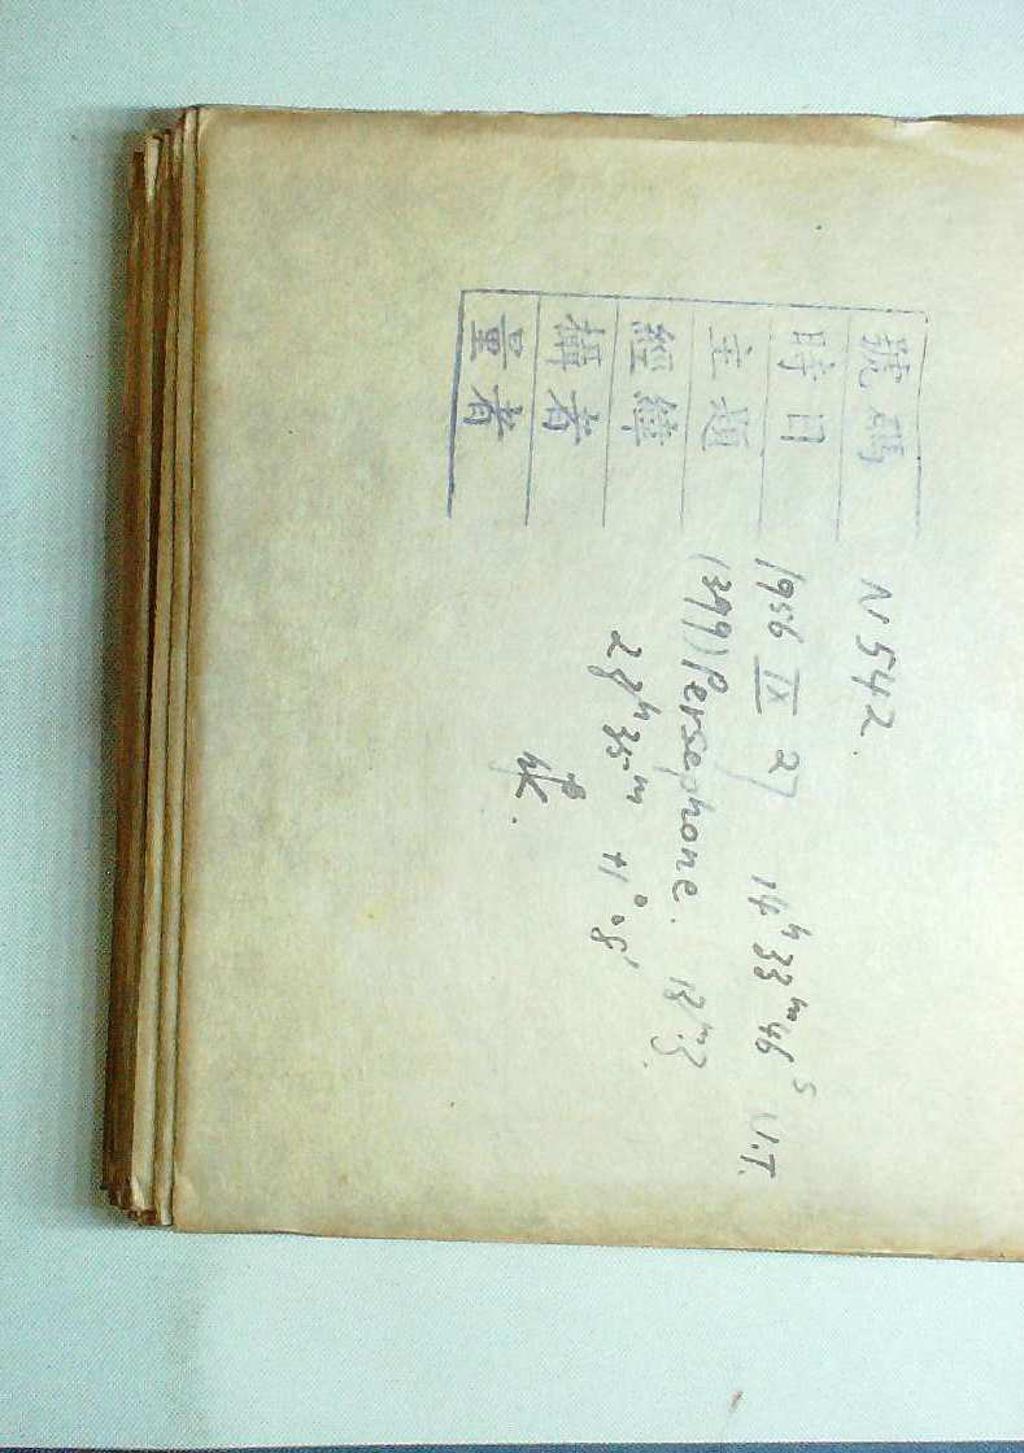 號碼 N 542.
時日 1956 IX 27 14h 33m 46s U.T.
主題 (399) Persephone. 13m.3.
經緯 23h 35m +1° 8'
攝者
量者